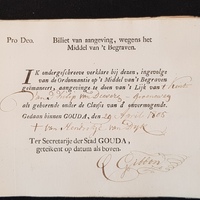 Pro Deo. Billiet van aangeving, wegens het
Middel van 't Begraven.
IK ondergeschreve verklare bij dezen, ingevolge
van de Ordonnantie op 't Middel van 't Begraven
geëmaneert, aangevinge te doen van 't Lijk van 't
van
als gehorende onder de Classis van d' onvermogende.
Gedaan binnen GOUDA, den 29 April 1805
+ van
Ter Secretarije der Stad GOUDA,
geteikent op datum als boven.